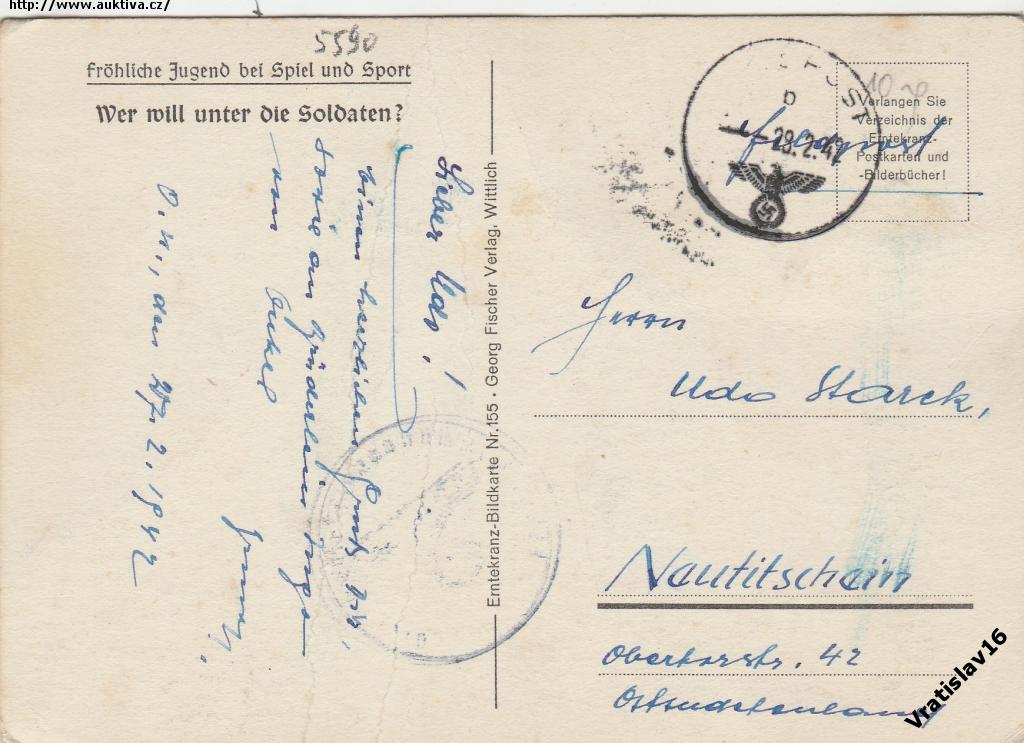 http://www.auktiva.cz/
5590
Fröhliche Jugend bei Spiel und Sport
Wer will unter die Soldaten?
Lieber Udo!
Einen herzlichen Gruß
sowie an
von Onkel
O. U., den 27. 2. 1942
Erntekranz-Bildkarte Nr. 155 · Georg Fischer Verlag, Wittlich
POST
b
28.2.42
Feldpost
Verlangen Sie
Verzeichnis der
Erntekranz-
Postkarten und
-Bilderbücher!
Herrn
Udo Starck,
Nautitschein
Obertorstr. 42
Ostsudetenland
Vratislav16